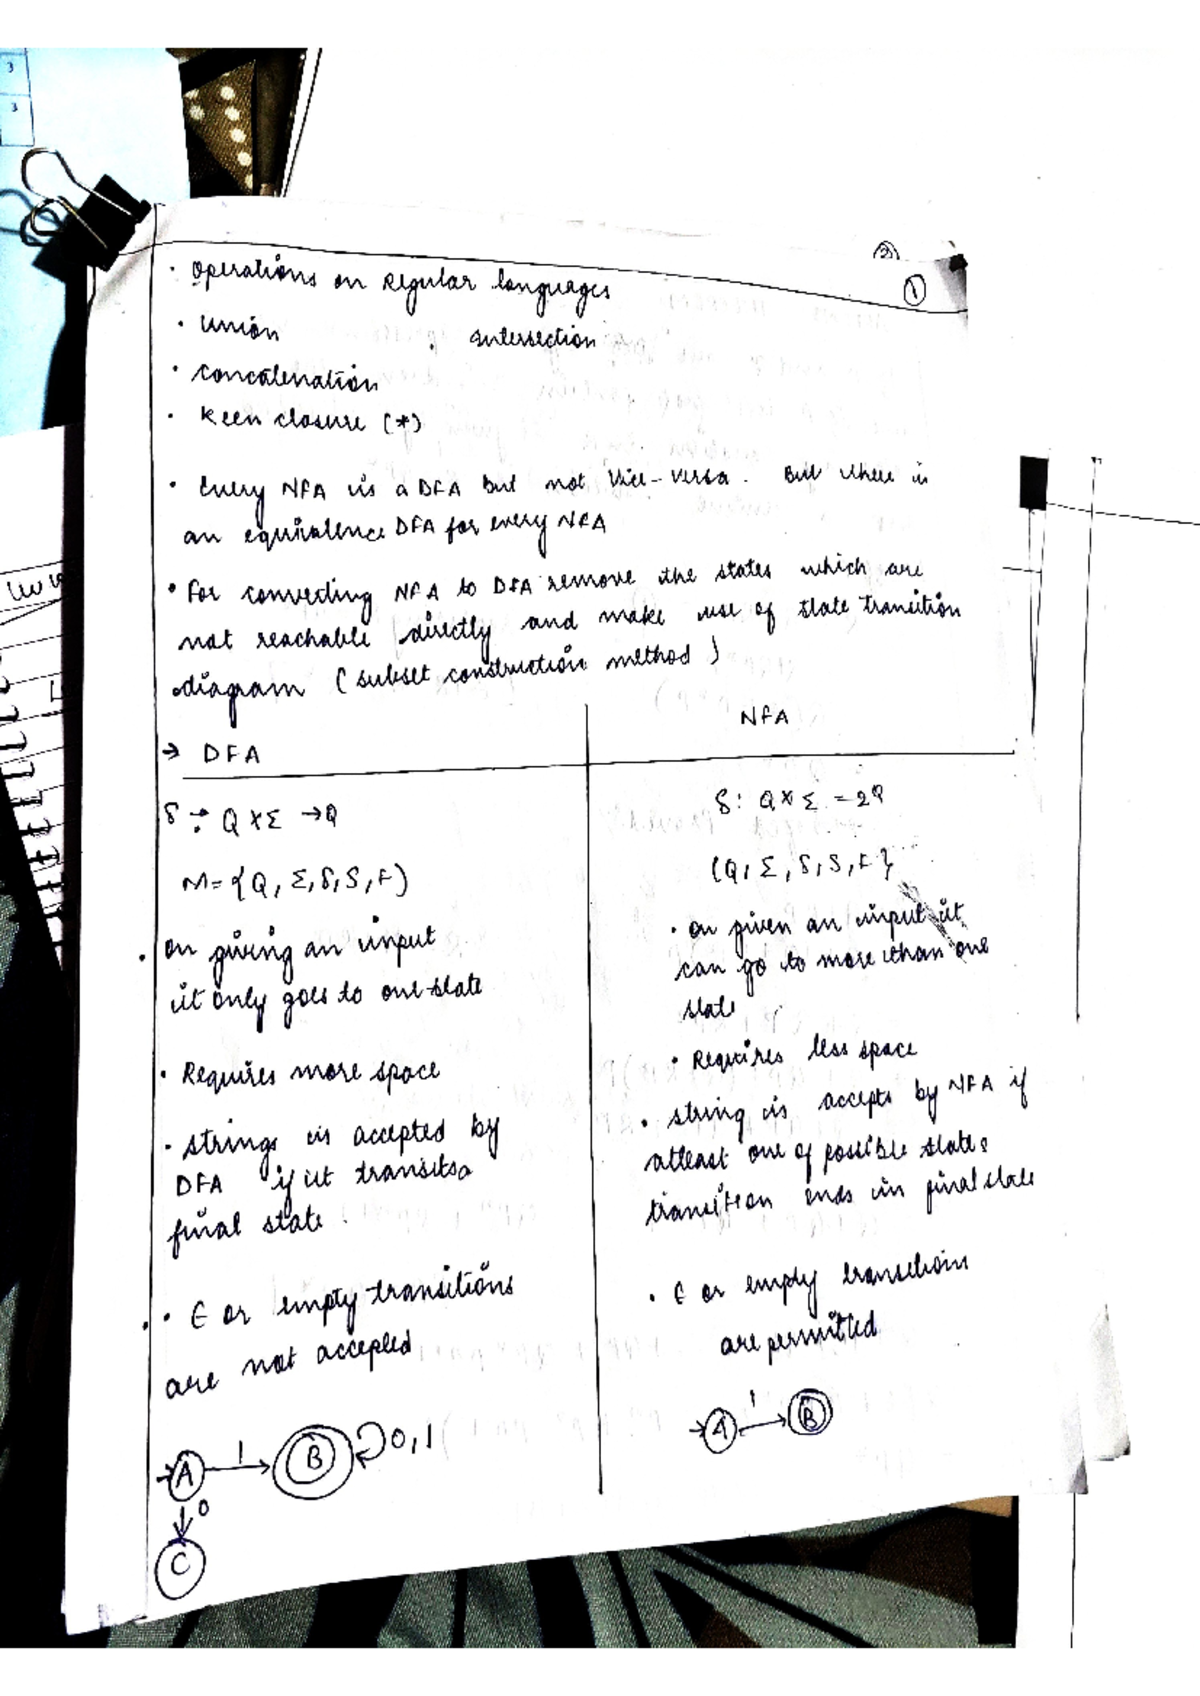 3
3
②
①
· Operations on Regular languages
· Union . Intersection
· Concatenation
· Kleen closure (*)
· Every NFA is a DFA but not Vice-versa. But there is
an equivalence DFA for every NFA
· For converting NFA to DFA remove the states which are
not reachable directly and make use of state transition
diagram (subset construction method)
NFA
→ DFA
δ : Q × Σ → Q
δ : Q × Σ = 2Q
M = {Q, Σ, δ, S, F)
(Q, Σ, δ, S, F}
· on giving an input
it only goes to one state
· on given an input it
can go to more than one
state
· Requires more space
· Requires less space
· strings is accepted by
DFA if it transits a
final state.
· string is accepts by NFA if
atleast one of possible states
transition ends in final state
· ϵ or empty transitions
are not accepted
· ϵ or empty transitions
are permitted
A 1 B 0,1
0
C
A 1 B